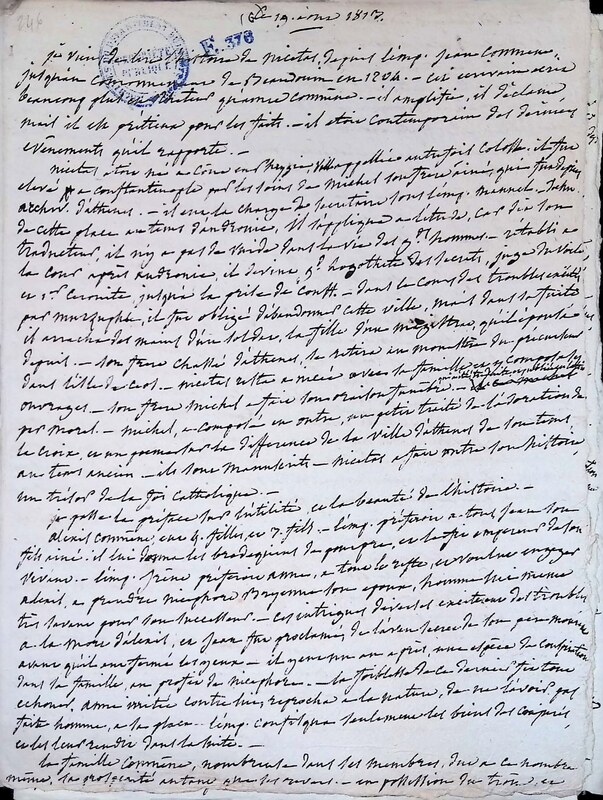 246
Ce 19 aoust 1817.
F. 376
je viens de lire l'histoire de nicetas, depuis l'emp. jean Comnene,
jusqu'au de Beaudouin en 1204. — cet ecrivain est
beaucoup plus orateur qu'anne comnene. — il amplifie, il declame
mais il est précieux pour les faits. — il etoit contemporain des derniers
evenements qu'il rapporte. —
nicetas etoit né a Cone en Phrygie, ville appellée autrefois Colosse. il fut
elevé a constantinople par les soins de Michel son frere ainé, qui fut depuis
archev. d'athenes. — il eut la charge de secretaire sous l'emp. manuel.
de cette place au tems d'andronic, il s'applique a l'etude, car dit son
traducteur, il n'y a pas de vuide dans la vie des gds hommes. — retabli a
la cour apres andronic, il devint gd logothete des secrets, juge du voile
et jusqu'a la prise de Const. — dans le cours des troubles excités
par murzuphle, il fut obligé d'abandonner cette ville, mais dans sa fuite
il arracha des mains d'un soldat, la fille d'un magistrat, qu'il épousa
depuis. — son frere chassé d'athenes, se retira au monastere du précurseur
dans l'isle de Ceos. — nicetas resta a nicée avec sa famille et y composa ses
ouvrages. — son frere michel a fait son oraison funebre
par morel. — michel, a composé en outre, un petit traité de l'adoration de
la croix, et un poeme sur la difference de la ville d'athenes de son tems
au tems ancien. — ils sont manuscrits. — nicetas a fait outre son histoire
un tresor de la foi catholique. —
je passe la préface sur l'utilité, et la beauté de l'histoire. —
alexis comnene, eut 4. filles, et 3. fils. — l'emp. préferoit a tous, jean son
fils ainé. il lui donna les brodequins de pourpre, et le fit empereur de son
vivant. — l'emp. Irène préferoit anne, a tout le reste, et voulut engager
alexis, a prendre nicephore Bryenne son epoux, homme lui meme
tres savant pour son successeur. — ces intrigues devoient exciter des troubles
a la mort d'alexis, et jean fut proclamé, de l'aveu secret de son pere mourant
avant qu'il eut fermé les yeux. — il y eut un an après, une espèce de conspiration
dans la famille, au profit de nicephore. — la foiblesse de ce dernier fit tout
echouer, anne irritée contre lui, reprocha a la nature, de ne l'avoir pas
faite homme, a sa place. — l'emp. confisqua seulement les biens des conjurés,
et les leur rendit dans la suite. —
la famille Comnène, nombreuse dans ses membres, dut a ce nombre
même, sa prosperité autant que ses revers. — en possession du trône, et